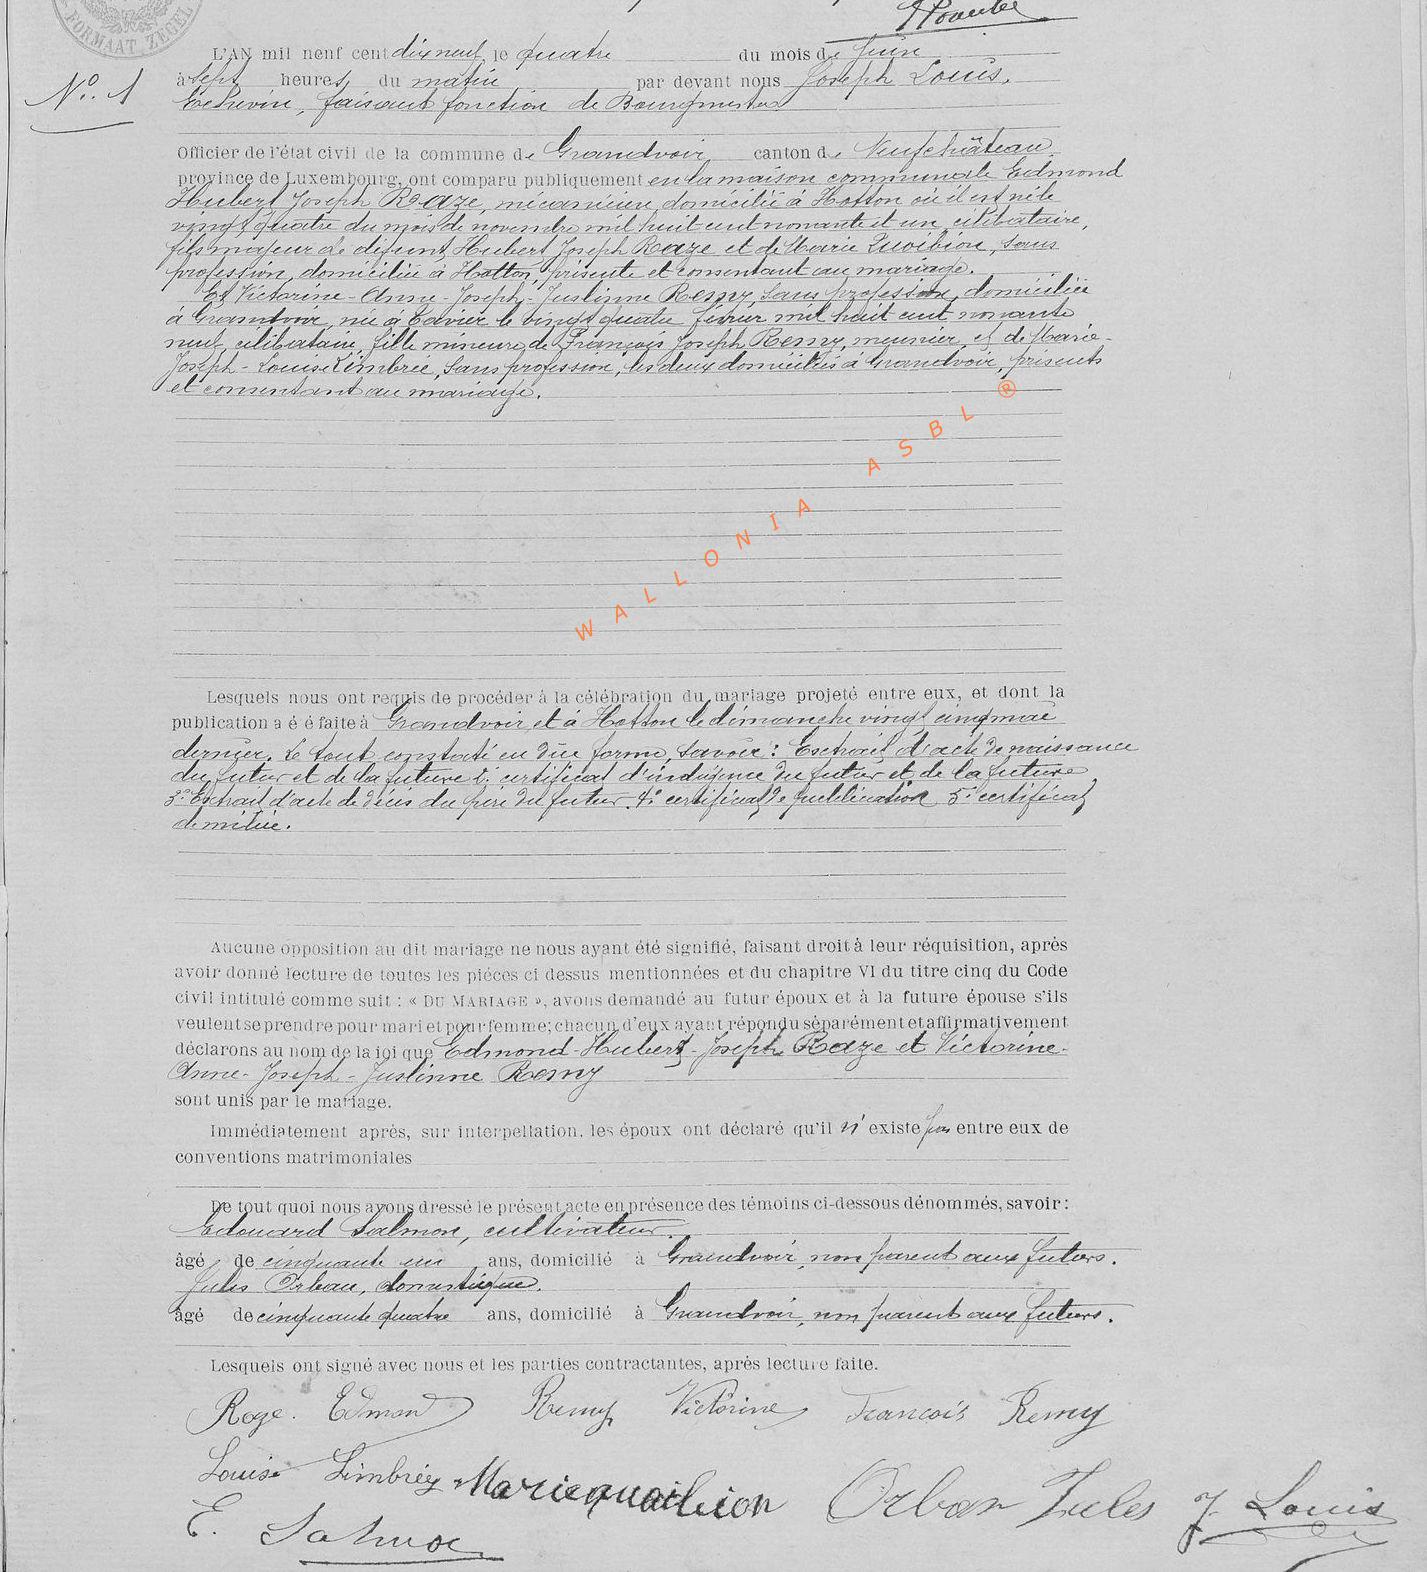 FORMAAT ZEGEL
L'AN mil neuf cent dix neuf, le quatre du mois de Juin
N° 1
à sept heures du matin par devant nous Joseph Louis,
Echevin, faisant fonction de Bourgmestre
Officier de l'état civil de la commune de Grandvoir, canton de Neufchâteau,
province de Luxembourg, ont comparu publiquement en la maison communale Edmond
Hubert Joseph Raze, mécanicien, domicilié à Hotton où il est né le
vingt quatre du mois de novembre mil huit cent nonante et un, célibataire,
fils majeur de défunt Hubert Joseph Raze et de Marie Quoibion, sans
profession, domiciliée à Hotton, présente et consentant au mariage.
Et Victorine-Anne-Joseph-Justinne Remy, sans profession, domiciliée
à Grandvoir, née à Cavier le vingt quatre février mil huit cent nonante
neuf, célibataire, fille mineure de François Joseph Remy, meunier, et de Marie-
Joseph-Louise Limbrée, sans profession, les deux domiciliés à Grandvoir, présents
et consentant au mariage.
WALLONIA ASBL ®
Lesquels nous ont requis de procéder à la célébration du mariage projeté entre eux, et dont la
publication a é é faite à Grandvoir et à Hotton le dimanche vingt cinq mai
dernier. Le tout constaté en dûe forme, savoir: Extrait d'acte de naissance
du futur et de la future 2° certificat d'indigence du futur et de la future,
3° Extrait d'acte de décès du père du futur. 4° certificat de publication 5° certificat
de milice.
Aucune opposition au dit mariage ne nous ayant été signifié, faisant droit à leur réquisition, après
avoir donné lecture de toutes les pièces ci dessus mentionnées et du chapitre VI du titre cinq du Code
civil intitulé comme suit : « DU MARIAGE », avons demandé au futur époux et à la future épouse s'ils
veulent se prendre pour mari et pour femme; chacun d'eux ayant répondu séparément et affirmativement
déclarons au nom de la loi que Edmond-Hubert-Joseph Raze et Victorine-
Anne-Joseph-Justinne Remy
sont unis par le mariage.
Immédiatement après, sur interpellation, les époux ont déclaré qu'il n'existe pas entre eux de
conventions matrimoniales
De tout quoi nous avons dressé le présent acte en présence des témoins ci-dessous dénommés, savoir:
Edouard Salmon, cultivateur.
âgé de cinquante un ans, domicilié à Grandvoir, non parent aux futurs.
Jules Orban, domestique.
âgé de cinquante quatre ans, domicilié à Grandvoir, non parent aux futurs.
Lesquels ont signé avec nous et les parties contractantes, après lecture faite.
Raze. Edmond Remy Victorine François Remy
Louise Limbrée Marie quoibion Orban Jules J. Louis
E. Salmon